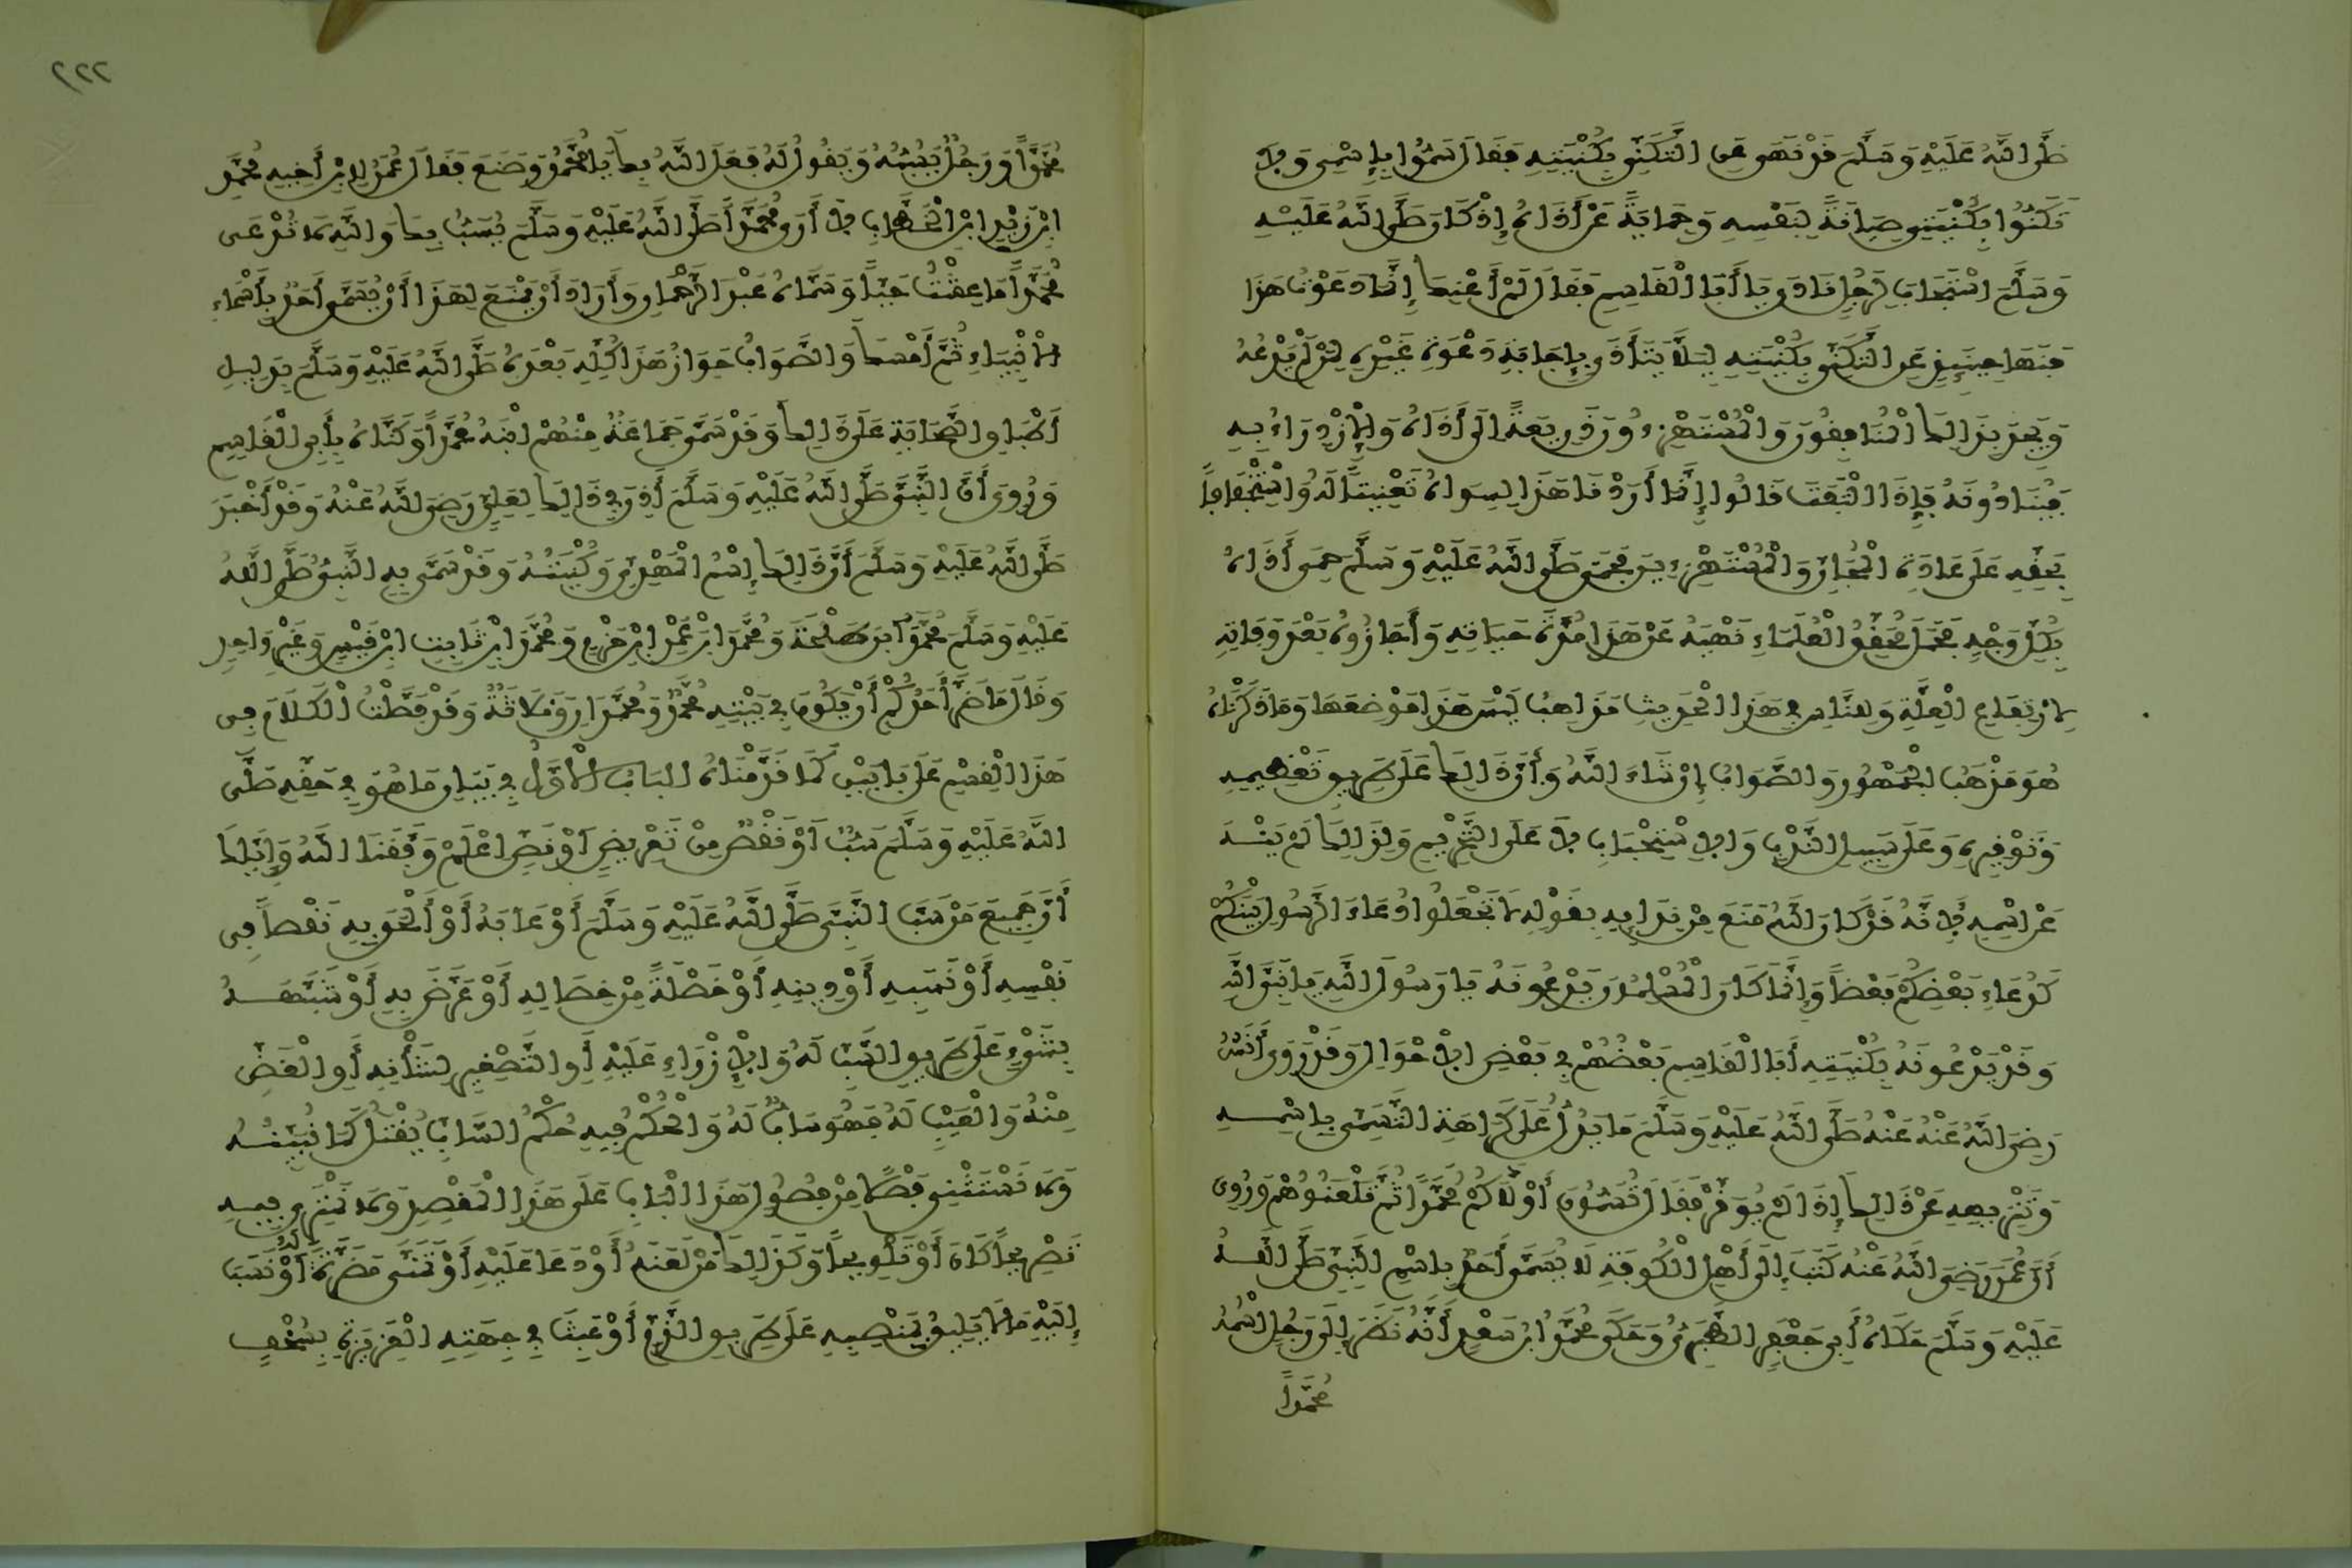 صَلَّى اللَّهُ عَلَيْهِ وَسَلَّمَ قَدْ نَهَى عَنِ التَّكَنِّي بِكُنْيَتِهِ فَقَالَ سَمُّوا بِاسْمِي وَلَا
تَكَنَّوْا بِكُنْيَتِي صِيَانَةً لِنَفْسِهِ وَحِمَايَةً عَنْ أَذَاهُ إِذْ كَانَ صَلَّى اللَّهُ عَلَيْهِ
وَسَلَّمَ اسْتَجَابَ لِرَجُلٍ نَادَى يَا أَبَا الْقَاسِمِ فَقَالَ لَمْ أَعْنِكَ إِنَّمَا دَعَوْتُ هَذَا
فَنَهَى حِينَئِذٍ عَنِ التَّكَنِّي بِكُنْيَتِهِ لِئَلَّا يَتَأَذَّى بِإِجَابَةِ دَعْوَةِ غَيْرِهِ لِمَنْ لَمْ يَدْعُهُ
وَيَجِدَ بِذَلِكَ الْمُنَافِقُونَ وَالْمُسْتَهْزِءُونَ ذَرِيعَةً إِلَى أَذَاهُ وَالْإِزْرَاءِ بِهِ
فَيُنَادُونَهُ فَإِذَا الْتَفَتَ قَالُوا إِنَّمَا أَرَدْنَا هَذَا لِسِوَاهُ تَعْنِيتًا لَهُ وَاسْتِخْفَافًا
بِحَقِّهِ عَلَى عَادَةِ الْمُجَّانِ وَالْمُسْتَهْزِءِينَ فَحَمَى صَلَّى اللَّهُ عَلَيْهِ وَسَلَّمَ حِمَى أَذَاهُ
بِكُلِّ وَجْهٍ فَحَمَلَ مُحَقِّقُو الْعُلَمَاءِ نَهْيَهُ عَنْ هَذَا مُدَّةَ حَيَاتِهِ وَأَجَازُوهُ بَعْدَ وَفَاتِهِ
لِارْتِفَاعِ الْعِلَّةِ وَلِلنَّاسِ فِي هَذَا الْحَدِيثِ مَذَاهِبُ لَيْسَ هَذَا مَوْضِعَهَا وَمَا ذَكَرْنَاهُ
هُوَ مَذْهَبُ الْجُمْهُورِ وَالصَّوَابُ إِنْ شَاءَ اللَّهُ وَأَنَّ ذَلِكَ عَلَى طَرِيقِ تَعْظِيمِهِ
وَتَوْقِيرِهِ وَعَلَى سَبِيلِ النَّدْبِ وَالِاسْتِحْبَابِ لَا عَلَى التَّحْرِيمِ وَلِذَلِكَ لَمْ يَنْهَ
عَنِ اسْمِهِ لِأَنَّهُ قَدْ كَانَ اللَّهُ مَنَعَ مِنْ نِدَائِهِ بِهِ بِقَوْلِهِ لَا تَجْعَلُوا دُعَاءَ الرَّسُولِ بَيْنَكُمْ
كَدُعَاءِ بَعْضِكُمْ بَعْضًا وَإِنَّمَا كَانَ الْمُسْلِمُونَ يَدْعُونَهُ يَا رَسُولَ اللَّهِ يَا نَبِيَّ اللَّهِ
وَقَدْ يَدْعُونَهُ بِكُنْيَتِهِ أَبَا الْقَاسِمِ بَعْضُهُمْ فِي بَعْضِ الْأَحْوَالِ وَقَدْ رَوَى أَنَسٌ
رَضِيَ اللَّهُ عَنْهُ عَنْهُ صَلَّى اللَّهُ عَلَيْهِ وَسَلَّمَ مَا يَدُلُّ عَلَى كَرَاهَةِ التَّسَمِّي بِاسْمِهِ
وَتَنْزِيهِهِ عَنْ ذَلِكَ إِذَا لَمْ يُوَقَّرْ فَقَالَ تُسَمُّونَ أَوْلَادَكُمْ مُحَمَّدًا ثُمَّ تَلْعَنُونَهُمْ وَرُوِيَ
أَنَّ عُمَرَ رَضِيَ اللَّهُ عَنْهُ كَتَبَ إِلَى أَهْلِ الْكُوفَةِ لَا يُسَمَّى أَحَدٌ بِاسْمِ النَّبِيِّ صَلَّى اللَّهُ
عَلَيْهِ وَسَلَّمَ حَكَاهُ أَبِي جَعْفَرٍ الطَّبَرِيُّ وَحَكَى مُحَمَّدُ ابْنُ سَعْدٍ أَنَّهُ نَظَرَ إِلَى رَجُلٍ اسْمُهُ
مُحَمَّدًا
٢٢٢
مُحَمَّدًا وَرَجُلٌ يَسُبُّهُ وَيَقُولُ لَهُ فَعَلَ اللَّهُ بِكَ يَا مُحَمَّدُ وَصَنَعَ فَقَالَ عُمَرُ لِابْنِ أَخِيهِ مُحَمَّدِ
ابْنِ زَيْدِ ابْنِ الْخَطَّابِ لَا أَرَى مُحَمَّدًا صَلَّى اللَّهُ عَلَيْهِ وَسَلَّمَ يُسَبُّ بِكَ وَاللَّهِ لَا تُدْعَى
مُحَمَّدًا مَا عِشْتُ حَيًّا وَسَمَّاهُ عَبْدَ الرَّحْمَانِ وَأَرَادَ أَنْ يَمْنَعَ لِهَذَا أَنْ يُسَمَّى أَحَدٌ بِأَسْمَاءِ
الْأَنْبِيَاءِ ثُمَّ أَمْسَكَ وَالصَّوَابُ جَوَازُ هَذَا كُلِّهِ بَعْدَهُ صَلَّى اللَّهُ عَلَيْهِ وَسَلَّمَ بِدَلِيلِ
أَطْبَاقِ الصَّحَابَةِ عَلَى ذَلِكَ وَقَدْ سَمَّى جَمَاعَةٌ مِنْهُمْ ابْنَهُ مُحَمَّدًا وَكَنَّاهُ بِأَبِي الْقَاسِمِ
وَرُوِيَ أَنَّ النَّبِيَّ صَلَّى اللَّهُ عَلَيْهِ وَسَلَّمَ أَذِنَ فِي ذَلِكَ لِعَلِيٍّ رَضِيَ اللَّهُ عَنْهُ وَقَدْ أَخْبَرَ
صَلَّى اللَّهُ عَلَيْهِ وَسَلَّمَ أَنَّ ذَلِكَ إِسْمُ الْمَهْدِيِّ وَكُنْيَتُهُ وَقَدْ سَمَّى بِهِ النَّبِيُّ صَلَّى اللَّهُ
عَلَيْهِ وَسَلَّمَ مُحَمَّدَ ابْنَ طَلْحَةَ وَمُحَمَّدَ ابْنَ عَمْرِ ابْنِ حَزْمٍ وَمُحَمَّدَ ابْنَ ثَابِتِ ابْنِ قَيْسٍ وَغَيْرَ وَاحِدٍ
وَقَالَ مَا ضَرَّ أَحَدَكُمْ أَنْ يَكُونَ فِي بَيْتِهِ مُحَمَّدٌ وَمُحَمَّدَانِ وَثَلَاثَةٌ وَقَدْ فَصَّلْتُ الْكَلَامَ فِي
هَذَا الْقِسْمِ عَلَى بَابَيْنِ كَمَا قَدَّمْنَاهُ الْبَابُ الْأَوَّلُ فِي بَيَانِ مَا هُوَ فِي حَقِّهِ صَلَّى
اللَّهُ عَلَيْهِ وَسَلَّمَ سَبٌّ أَوْ نَقْصٌ مِنْ تَعْرِيضٍ أَوْ نَصٍّ اعْلَمْ وَفَّقَنَا اللَّهُ وَإِيَّاكَ
أَنَّ جَمِيعَ مَنْ سَبَّ النَّبِيَّ صَلَّى اللَّهُ عَلَيْهِ وَسَلَّمَ أَوْ عَابَهُ أَوْ أَلْحَقَ بِهِ نَقْصًا فِي
نَفْسِهِ أَوْ نَسَبِهِ أَوْ دِينِهِ أَوْ خَصْلَةً مِنْ خِصَالِهِ أَوْ عَرَّضَ بِهِ أَوْ شَبَّهَهُ
بِشَيْءٍ عَلَى طَرِيقِ السَّبِّ لَهُ وَالْإِزْرَاءِ عَلَيْهِ أَوِ التَّصْغِيرِ لِشَأْنِهِ أَوِ الْغَضِّ
مِنْهُ وَالْعَيْبِ لَهُ فَهُوَ سَابٌّ لَهُ وَالْحُكْمُ فِيهِ حُكْمُ السَّابِّ يُقْتَلُ كَمَا نُبَيِّنُهُ
وَلَا نَسْتَثْنِي فَصْلًا مِنْ فُصُولِ هَذَا الْبَابِ عَلَى هَذَا الْمَقْصِدِ وَلَا نَمْتَرِي فِيهِ
تَصْرِيحًا كَانَ أَوْ تَلْوِيحًا وَكَذَلِكَ مَنْ لَعَنَهُ أَوْ دَعَا عَلَيْهِ أَوْ تَمَنَّى مَضَرَّةً لَهُ أَوْ نَسَبَ
إِلَيْهِ مَا لَا يَلِيقُ بِمَنْصِبِهِ عَلَى طَرِيقِ الذَّمِّ أَوْ عَبِثَ فِي جِهَتِهِ الْعَزِيزَةِ بِسُخْفٍ